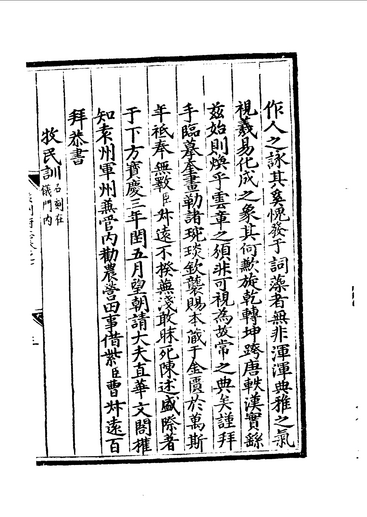 作人之詠其奚愧發于詞藻者無非渾渾典雅之氣
視羲易化成之象其何歉旋乾轉坤跨唐軼漢實繇
兹始則煥乎雲章之頒非可視為故常之典矣謹拜
手臨摹奎畫勒諸琬琰欽襲賜本藏于金匱於萬斯
年祗奉無斁臣叔遠不揆蕪淺敢昧死陳述盛際者
于下方寶慶三年閏五月望朝請大夫直華文閣權
知袁州軍州兼管内勸農營田事借紫臣曹叔遠百
拜恭書
牧民訓石刻在儀門内